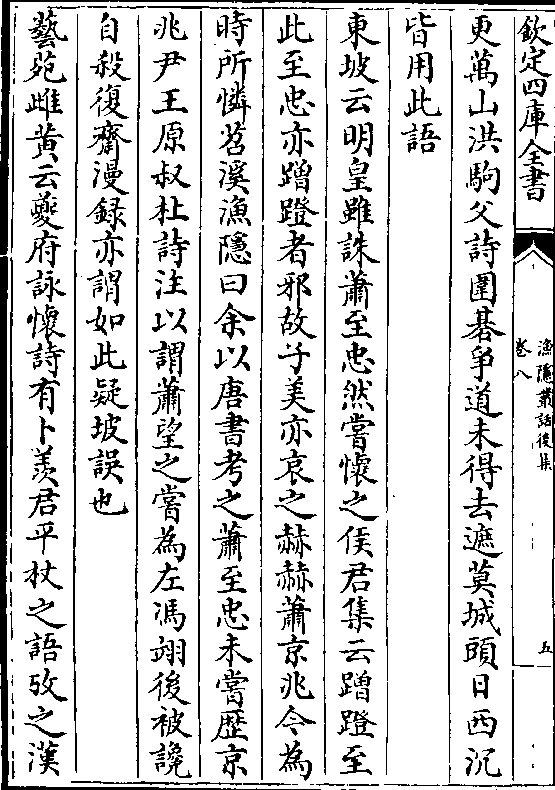 欽定四庫全書
漁隱叢話後集
卷八
五
更萬山洪駒父詩圍碁爭道未得去遮莫城頭日西沉
皆用此語
東坡云明皇雖誅蕭至忠然嘗懷之侯君集云蹭蹬至
此至忠亦蹭蹬者邪故子美亦哀之赫赫蕭京兆今為
時所憐苕溪漁隱曰余以唐書考之蕭至忠未嘗歴京
兆尹王原叔杜詩注以謂蕭望之嘗為左馮翊後被讒
自殺復齋漫録亦謂如此疑坡誤也
藝苑雌黃云夔府詠懷詩有卜羡君平杖之語攷之漢